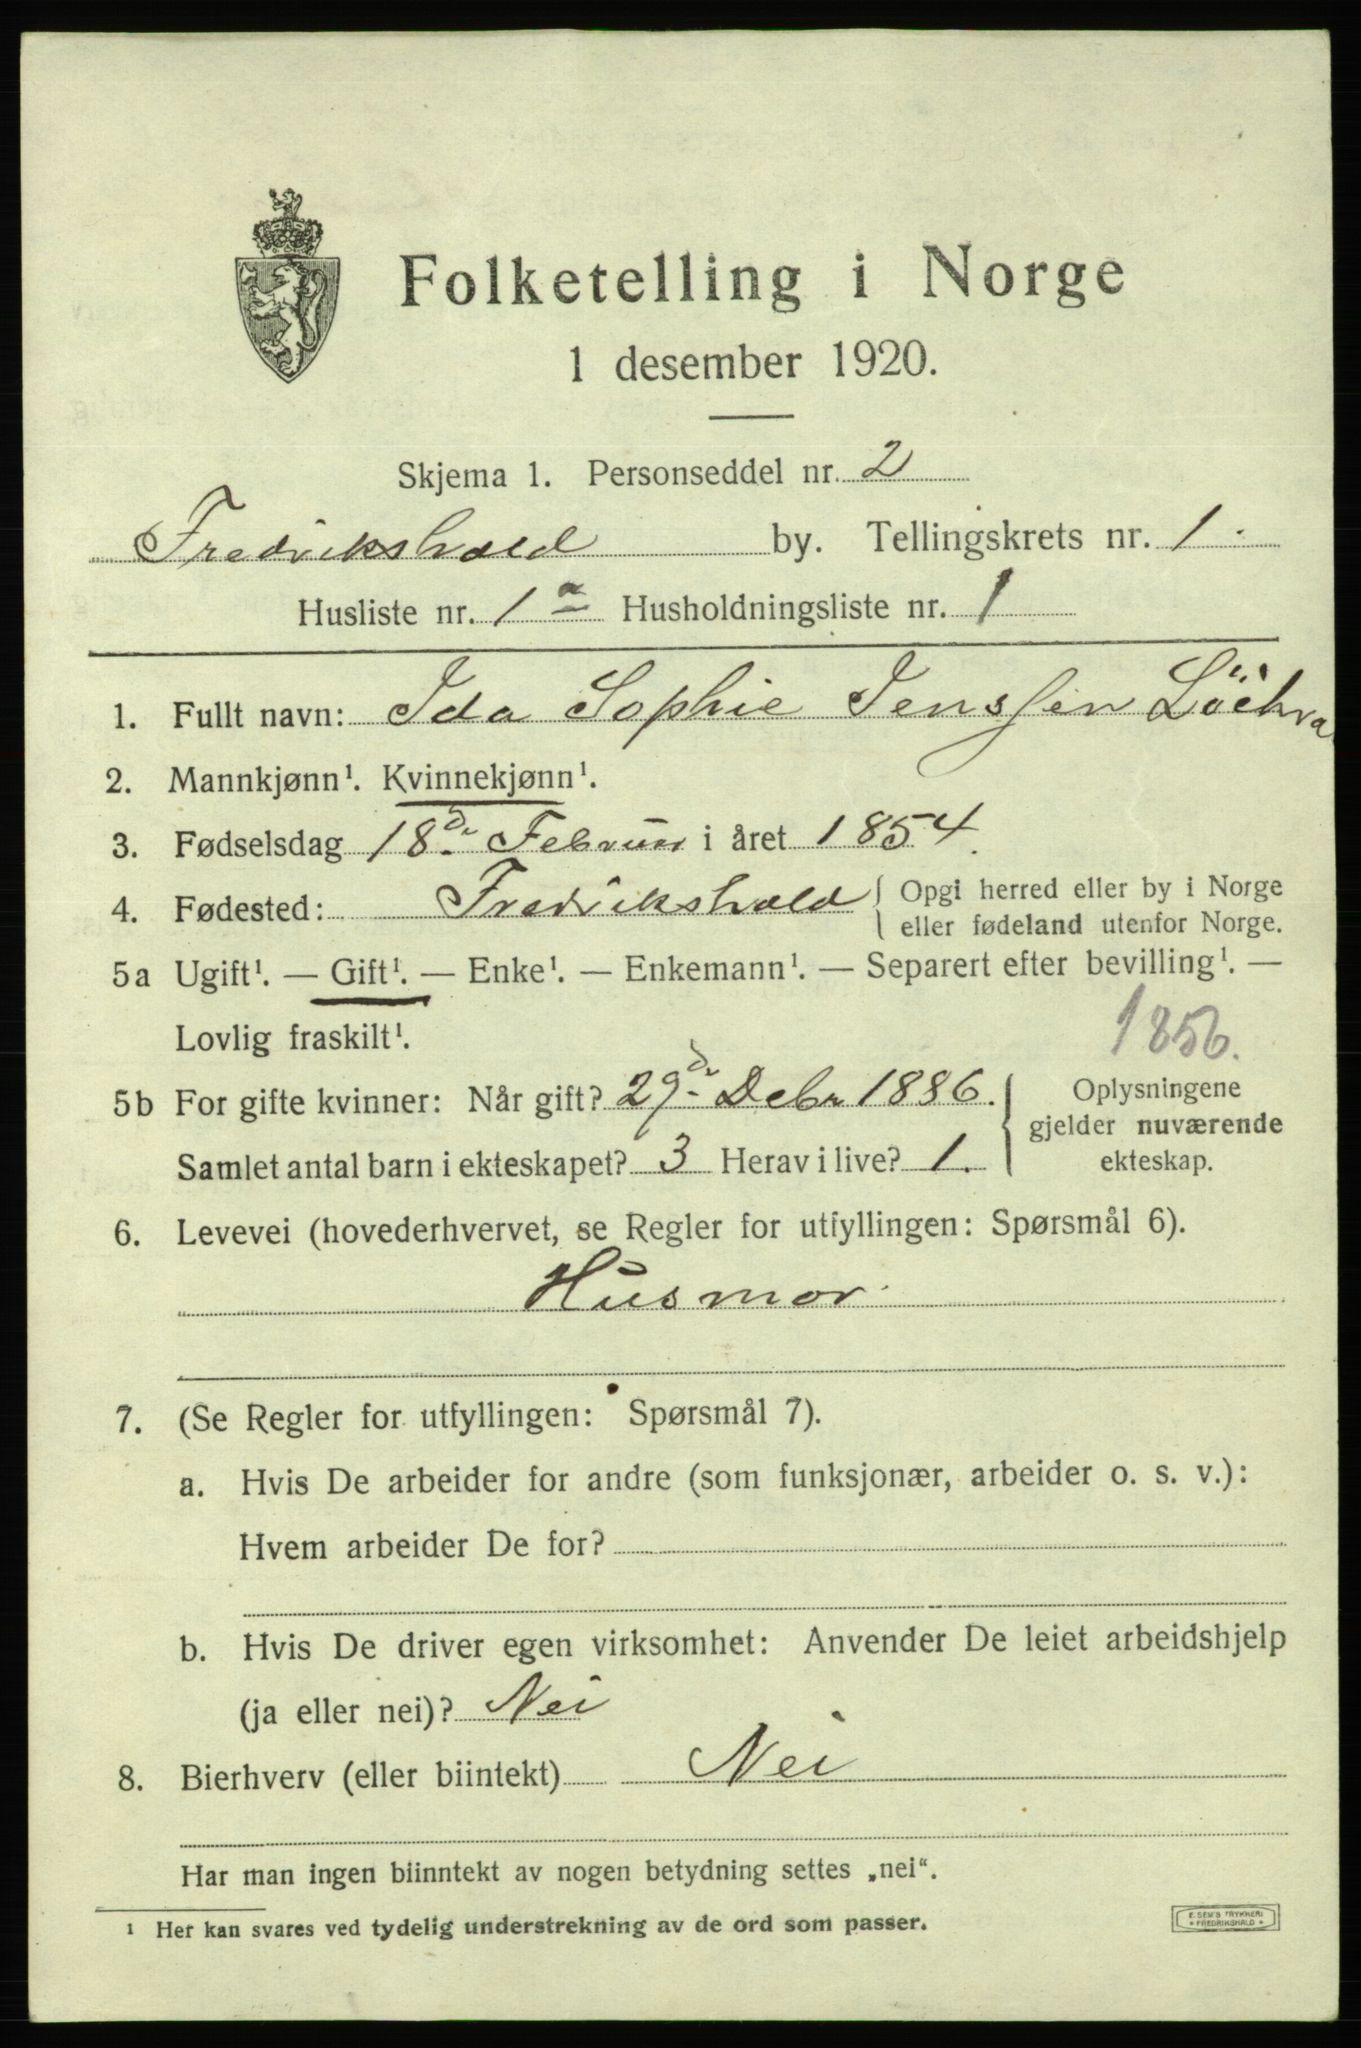 Folketelling i Norge
1 desember 1920.
Skjema 1. Personseddel nr. 2
Fredrikshald by. Tellingskrets nr. 1.
Husliste nr. 1 a Husholdningsliste nr. 1
1. Fullt navn: Ida Sophie Jenssen
2. Mannkjønn¹. Kvinnekjønn¹.
3. Fødselsdag 18de Februar i året 1854.
4. Fødested: Fredrikshald { Opgi herred eller by i Norge
eller fødeland utenfor Norge.
5a Ugift¹. — Gift¹. — Enke¹. — Enkemann¹. — Separert efter bevilling¹. —
Lovlig fraskilt¹.
1856.
5b For gifte kvinner: Når gift? 29de Debr 1886. { Oplysningene
gjelder nuværende
Samlet antal barn i ekteskapet? 3 Herav i live? 1. ekteskap.
6. Levevei (hovederhvervet, se Regler for utfyllingen: Spørsmål 6).
Husmor
7. (Se Regler for utfyllingen: Spørsmål 7).
a. Hvis De arbeider for andre (som funksjonær, arbeider o. s. v.):
Hvem arbeider De for?
b. Hvis De driver egen virksomhet: Anvender De leiet arbeidshjelp
(ja eller nei)? Nei
8. Bierhverv (eller biintekt) Nei
Har man ingen biinntekt av nogen betydning settes „nei“.
¹ Her kan svares ved tydelig understrekning av de ord som passer.
E. SEM'S TRYKKERI
• FREDRIKSHALD •